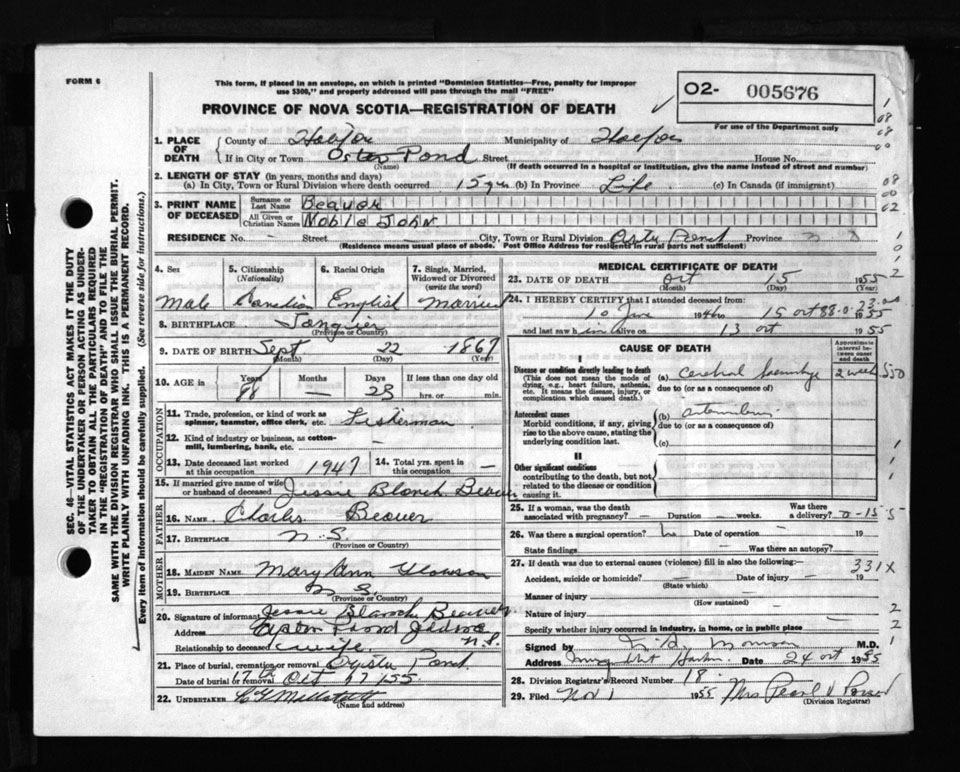 FORM 6
This form, if placed in an envelope, on which is printed "Dominion Statistics—Free, penalty for improper
use $300," and properly addressed will pass through the mail "FREE"
PROVINCE OF NOVA SCOTIA—REGISTRATION OF DEATH
O2- 005676
For use of the Department only
1. PLACE OF DEATH
County of Halifax Municipality of Halifax
If in City or Town Oster Pond Street House No.
(Name) (If death occurred in a hospital or institution, give the name instead of street and number)
2. LENGTH OF STAY (in years, months and days)
(a) In City, Town or Rural Division where death occurred 15 yrs (b) In Province Life (c) In Canada (if immigrant)
3. PRINT NAME OF DECEASED
Surname or Last Name Beaver
All Given or Christian Names Noble John
RESIDENCE No. — Street — City, Town or Rural Division Oster Pond Province N S
(Residence means usual place of abode. Post Office Address for residents in rural parts not sufficient)
4. Sex 5. Citizenship (Nationality) 6. Racial Origin 7. Single, Married, Widowed or Divorced (write the word)
Male Canadian English Married
8. BIRTHPLACE Tangier
(Province or Country)
9. DATE OF BIRTH Sept 22 1867
(Month) (Day) (Year)
10. AGE in Years Months Days If less than one day old
88 — 23 hrs. or min.
OCCUPATION
11. Trade, profession, or kind of work as spinner, teamster, office clerk, etc. Fisherman
12. Kind of industry or business, as cotton-mill, lumbering, bank, etc. —
13. Date deceased last worked at this occupation 1947 14. Total yrs. spent in this occupation —
15. If married give name of wife or husband of deceased Jessie Blanch Beaver
FATHER
16. NAME Charles Beaver
17. BIRTHPLACE N.S.
(Province or Country)
MOTHER
18. MAIDEN NAME Mary Ann
19. BIRTHPLACE N S.
(Province or Country)
20. Signature of informant Jessie Blanch Beaver
Address Oyster Pond Jeddore N.S.
Relationship to deceased wife
21. Place of burial, cremation or removal Oyster Pond
Date of burial or removal 17th Oct 17/55
22. UNDERTAKER
(Name and address)
MEDICAL CERTIFICATE OF DEATH
23. DATE OF DEATH Oct 15 1955
(Month) (Day) (Year)
24. I HEREBY CERTIFY that I attended deceased from:
15 Oct 1955
and last saw him alive on 13 Oct 1955
CAUSE OF DEATH
Approximate interval between onset and death
I
Disease or condition directly leading to death
(This does not mean the mode of dying, e.g., heart failure, asthenia, etc. It means the disease, injury, or complication which caused death.)
(a) Cerebral 2 weeks
due to (or as a consequence of)
Antecedent causes
Morbid conditions, if any, giving rise to the above cause, stating the underlying condition last.
(b)
due to (or as a consequence of)
(c)
II
Other significant conditions
contributing to the death, but not related to the disease or condition causing it.
25. If a woman, was the death associated with pregnancy? — Duration — weeks. Was there a delivery?
26. Was there a surgical operation? No Date of operation — 19
State findings — Was there an autopsy?
27. If death was due to external causes (violence) fill in also the following:— 331X
Accident, suicide or homicide? — Date of injury — 19
(State which)
Manner of injury
(How sustained)
Nature of injury
Specify whether injury occurred in industry, in home, or in public place
Signed by M.D.
Address Date 24 Oct 1955
28. Division Registrar's Record Number 18.
29. Filed Nov 1 1955 Mrs Pearl
(Division Registrar)
SEC. 46—VITAL STATISTICS ACT MAKES IT THE DUTY
OF THE UNDERTAKER OR PERSON ACTING AS UNDER-
TAKER TO OBTAIN ALL THE PARTICULARS REQUIRED
IN THE "REGISTRATION OF DEATH" AND TO FILE THE
SAME WITH THE DIVISION REGISTRAR WHO SHALL ISSUE THE BURIAL PERMIT.
WRITE PLAINLY WITH UNFADING INK. THIS IS A PERMANENT RECORD.
Every item of Information should be carefully supplied. (See reverse side for instructions.)